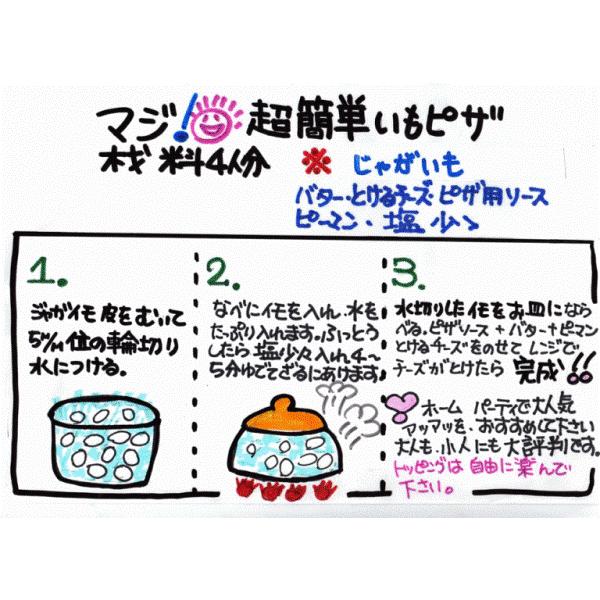 マジ! 超簡単いもピザ
材料4人分 ※ じゃがいも
バター・とけるチーズ・ピザ用ソース
ピーマン・塩少々
1.
ジャガイモ皮をむいて
5㎜位の輪切り
水につける。
2.
なべにイモを入れ、水を
たっぷり入れます。ふっとう
したら塩少々入れ4~
5分ゆでてざるにあけます。
3.
水切りしたイモをお皿になら
べる。ピザソース+バター+ピマン
とけるチーズをのせてレンジで
チーズがとけたら 完成!!
ホームパーティで大人気
アッマッを、おすすめして下さい
大人も、小人にも大評判です。
トッピングは自由に楽んで
下さい。